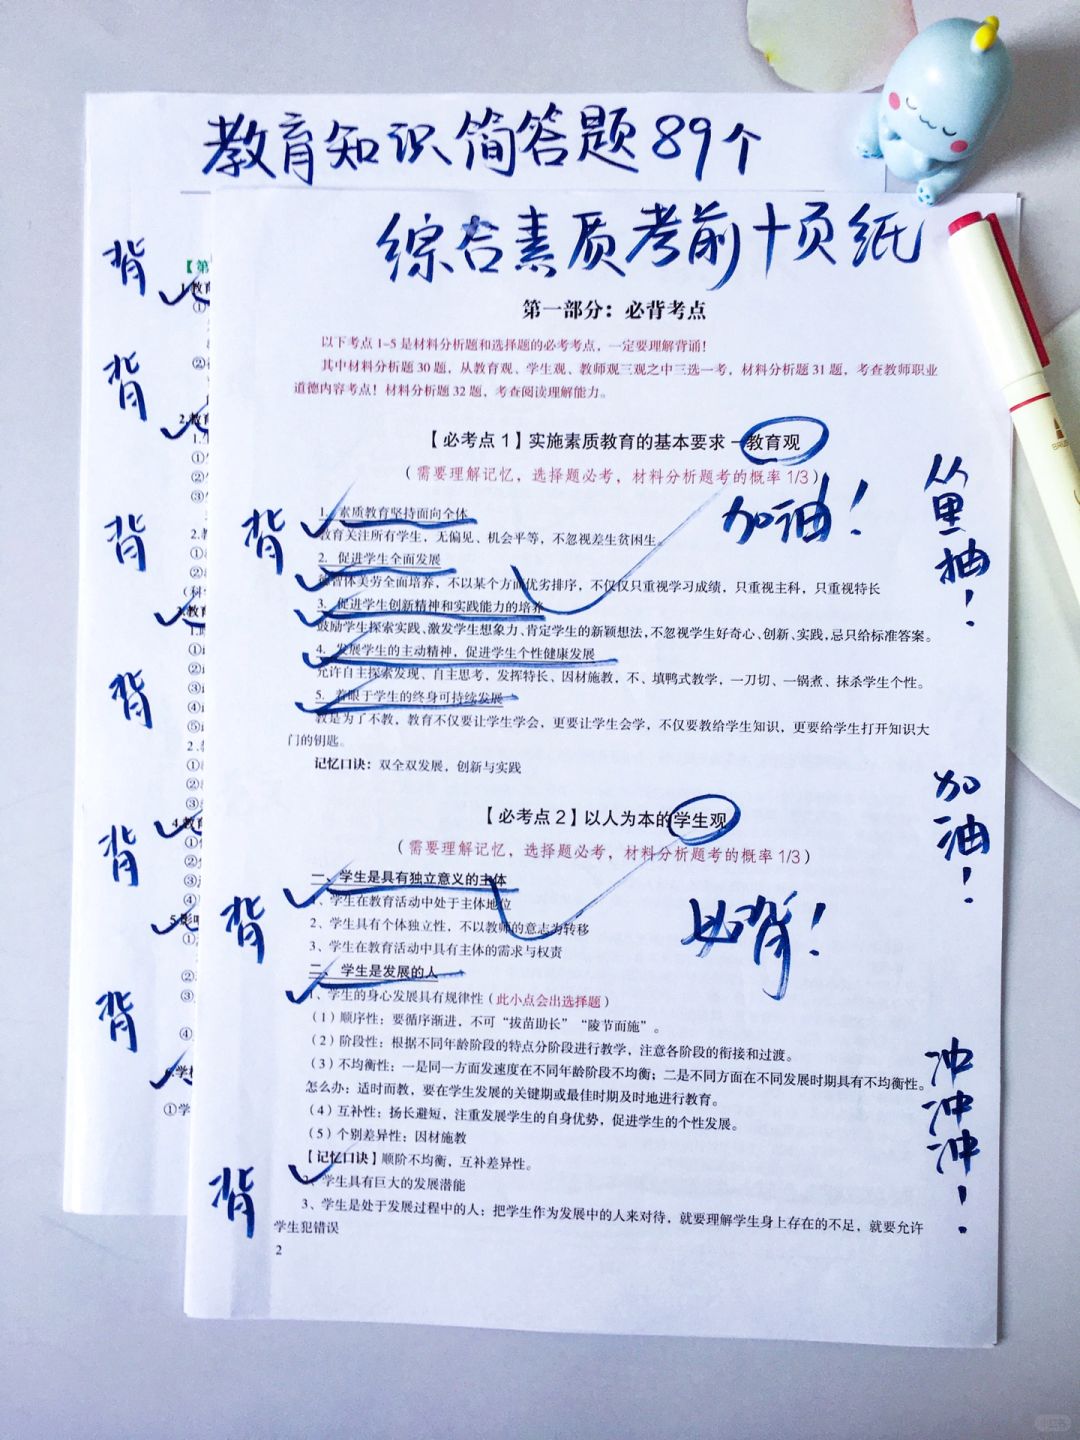 教育知识简答题89个
综合素质考前十页纸
第一部分：必背考点
以下考点1-5是材料分析题和选择题的必考考点，一定要理解背诵！
其中材料分析题30题，从教育观、学生观、教师观三观之中三选一考，材料分析题31题，考查教师职业
道德内容考点！材料分析题32题，考查阅读理解能力。
【必考点1】实施素质教育的基本要求—教育观
（需要理解记忆，选择题必考，材料分析题考的概率1/3）
加油！
从
里
抽！
背
1. 素质教育坚持面向全体
教育关注所有学生，无偏见、机会平等，不忽视差生贫困生。
2. 促进学生全面发展
德智体美劳全面培养，不以某个方面优劣排序，不仅仅只重视学习成绩，只重视主科，只重视特长
3. 促进学生创新精神和实践能力的培养
鼓励学生探索实践、激发学生想象力、肯定学生的新颖想法，不忽视学生好奇心、创新、实践，忌只给标准答案。
4. 发展学生的主动精神，促进学生个性健康发展
允许自主探索发现、自主思考，发挥特长、因材施教，不、填鸭式教学，一刀切、一锅煮、抹杀学生个性。
5. 着眼于学生的终身可持续发展
教是为了不教，教育不仅要让学生学会，更要让学生会学，不仅要教给学生知识，更要给学生打开知识大
门的钥匙。
记忆口诀：双全双发展，创新与实践
加
油！
【必考点2】以人为本的学生观
（需要理解记忆，选择题必考，材料分析题考的概率1/3）
必背！
背
二、学生是具有独立意义的主体
1、学生在教育活动中处于主体地位
2、学生具有个体独立性，不以教师的意志为转移
3、学生在教育活动中具有主体的需求与权责
二、学生是发展的人
1、学生的身心发展具有规律性（此小点会出选择题）
（1）顺序性：要循序渐进，不可“拔苗助长”“陵节而施”。
（2）阶段性：根据不同年龄阶段的特点分阶段进行教学，注意各阶段的衔接和过渡。
（3）不均衡性：一是同一方面发速度在不同年龄阶段不均衡；二是不同方面在不同发展时期具有不均衡性。
怎么办：适时而教，要在学生发展的关键期或最佳时期及时地进行教育。
（4）互补性：扬长避短，注重发展学生的自身优势，促进学生的个性发展。
（5）个别差异性：因材施教
【记忆口诀】顺阶不均衡，互补差异性。
2、学生具有巨大的发展潜能
3、学生是处于发展过程中的人：把学生作为发展中的人来对待，就要理解学生身上存在的不足，就要允许
学生犯错误
2
冲
冲
冲！
背
背
背
背
背
背
背
【第
1.教育
①
②
2.教育
1.
①
②
③
2.教
①
②
（科
3.教育
1.
①
②
③
④
⑤
2.
①
②
③
4.教育
①
②
③
④
5.影响
①
②
③
④
6.学校
①学